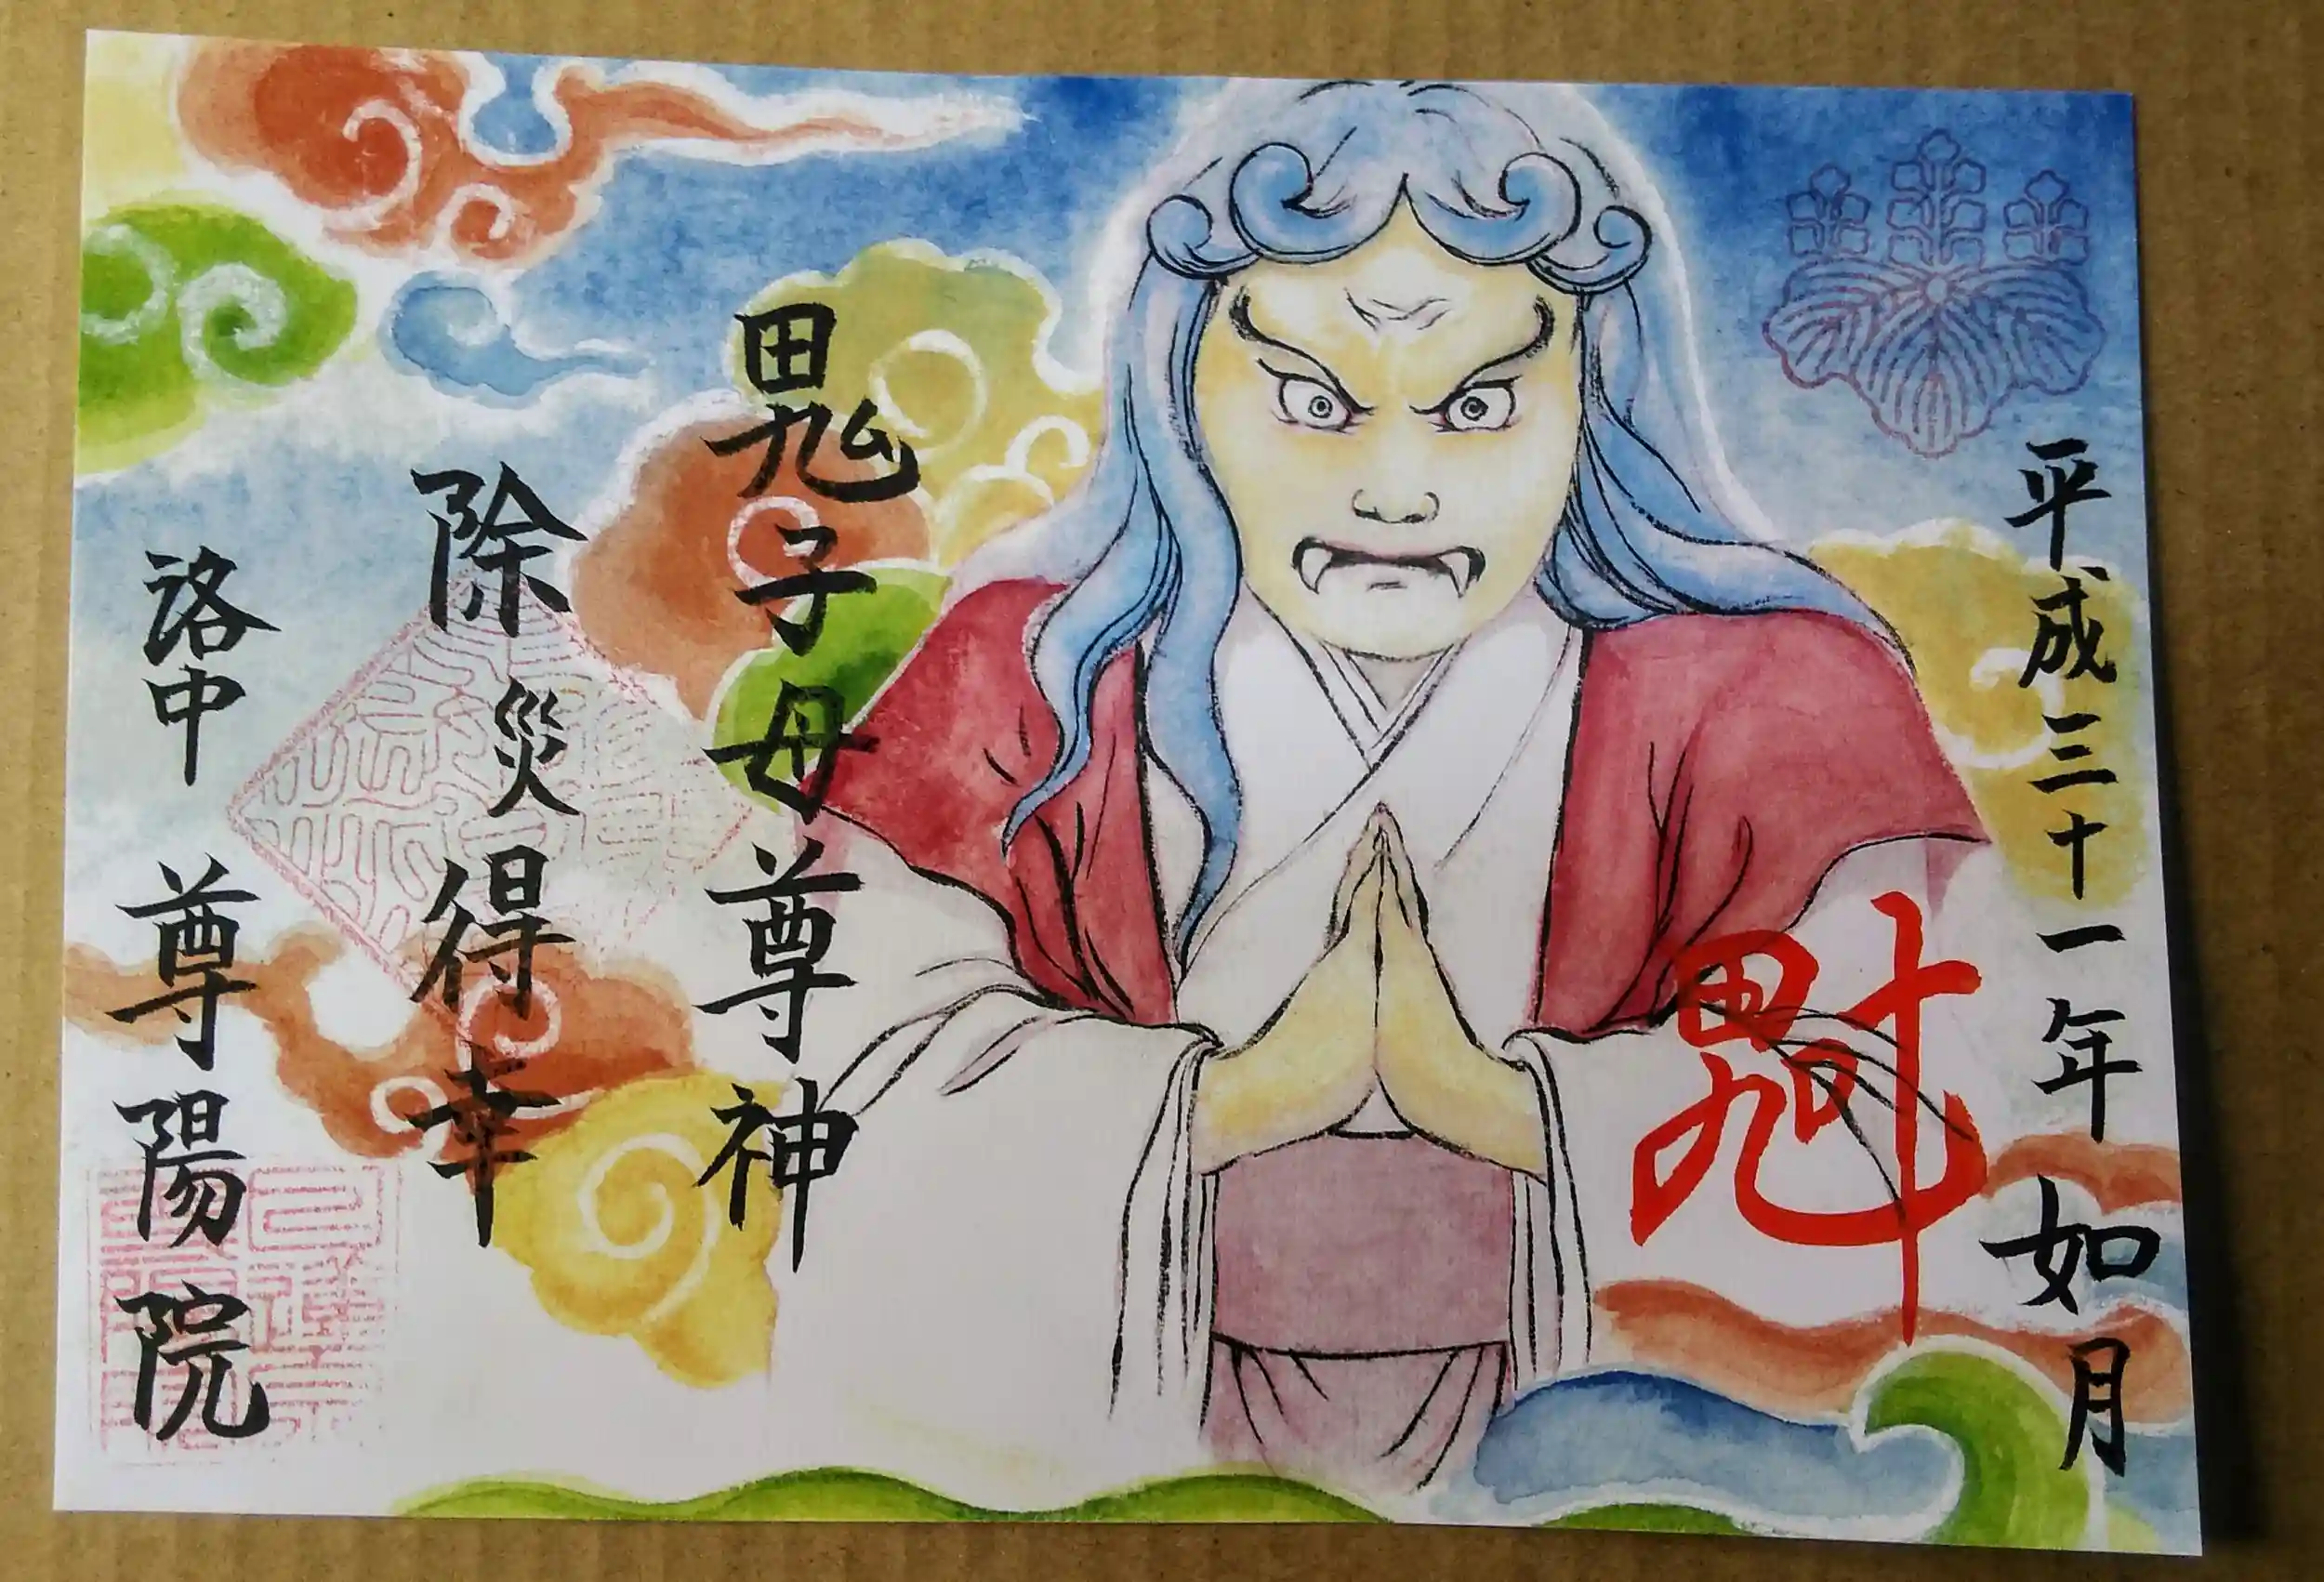 平成三十一年 如月
魁
鬼子母尊神
除災得幸
洛中 尊陽院